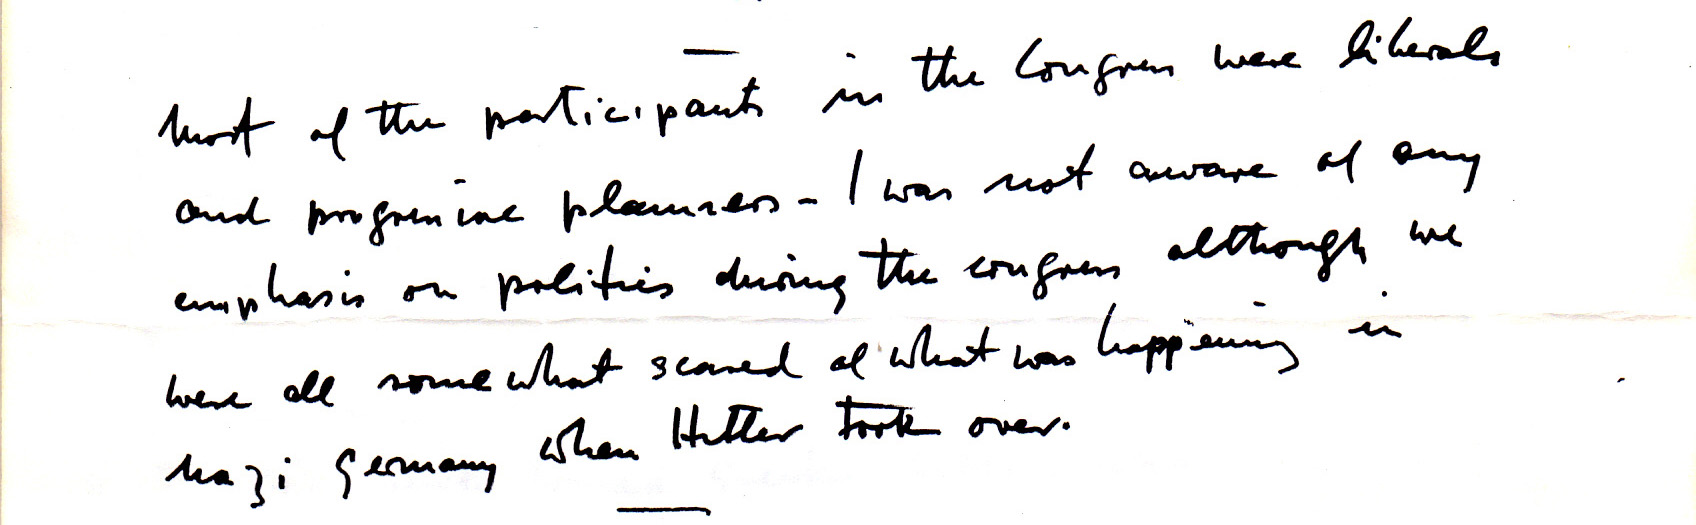 Most of the participants in the Congress were liberals
and progressive planners - I was not aware of any
emphasis on politics during the congress although we
were all somewhat scared of what was happening in
Nazi Germany when Hitler took over.